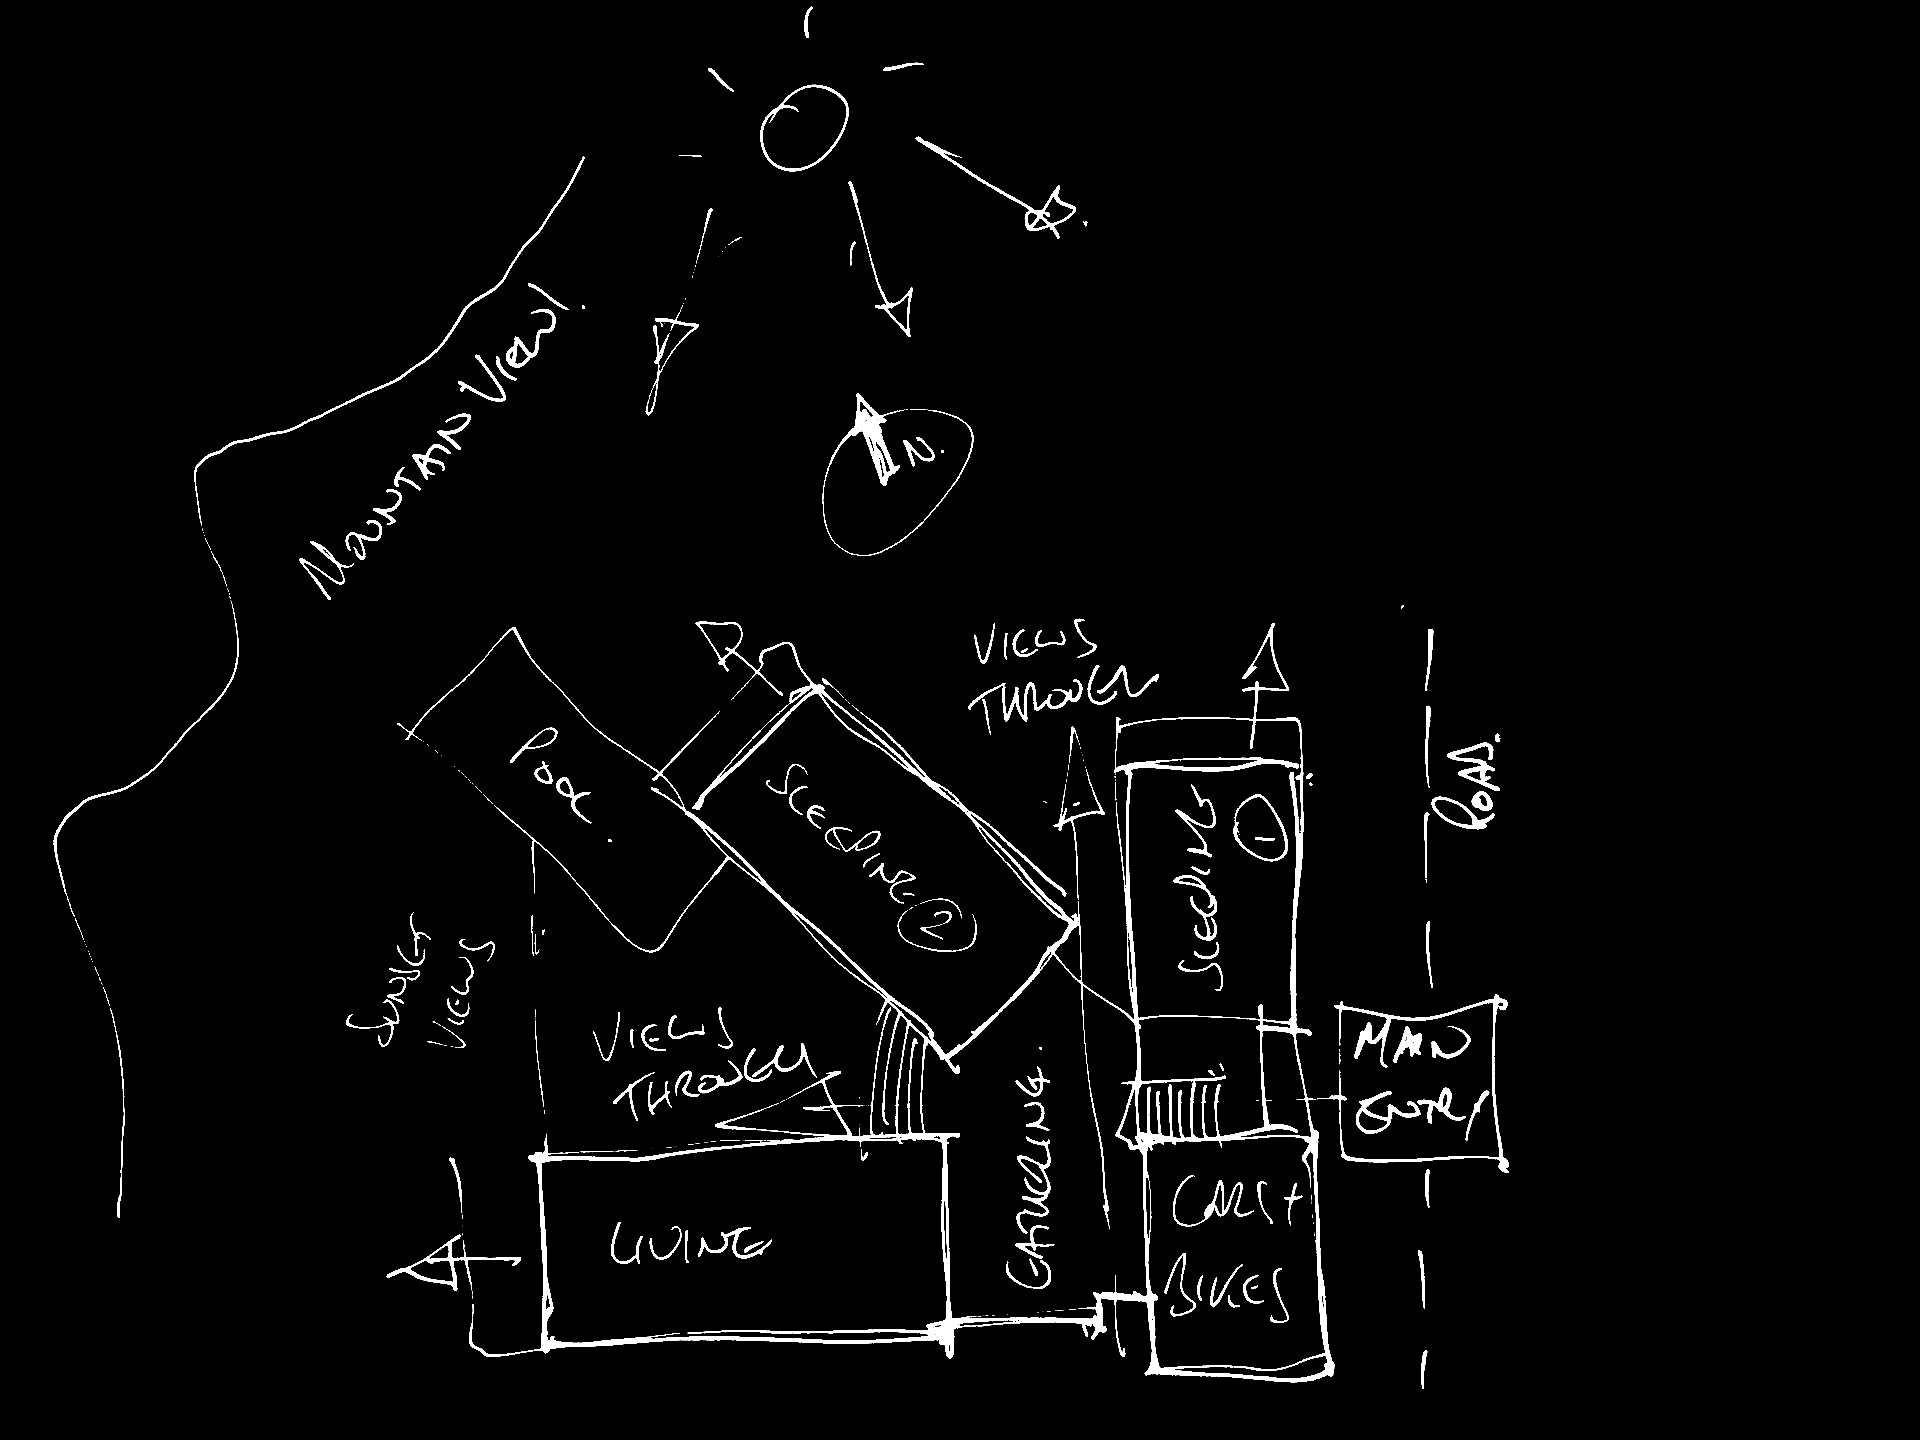 MOUNTAIN VIEW!
N.
VIEWS
THROUGH
POOL.
SLEEPING
2
SLEEPING
1
ROAD.
SUNSET
VIEWS
VIEWS
THROUGH
GATHERING.
MAIN
ENTRY
LIVING
CARS +
BIKES